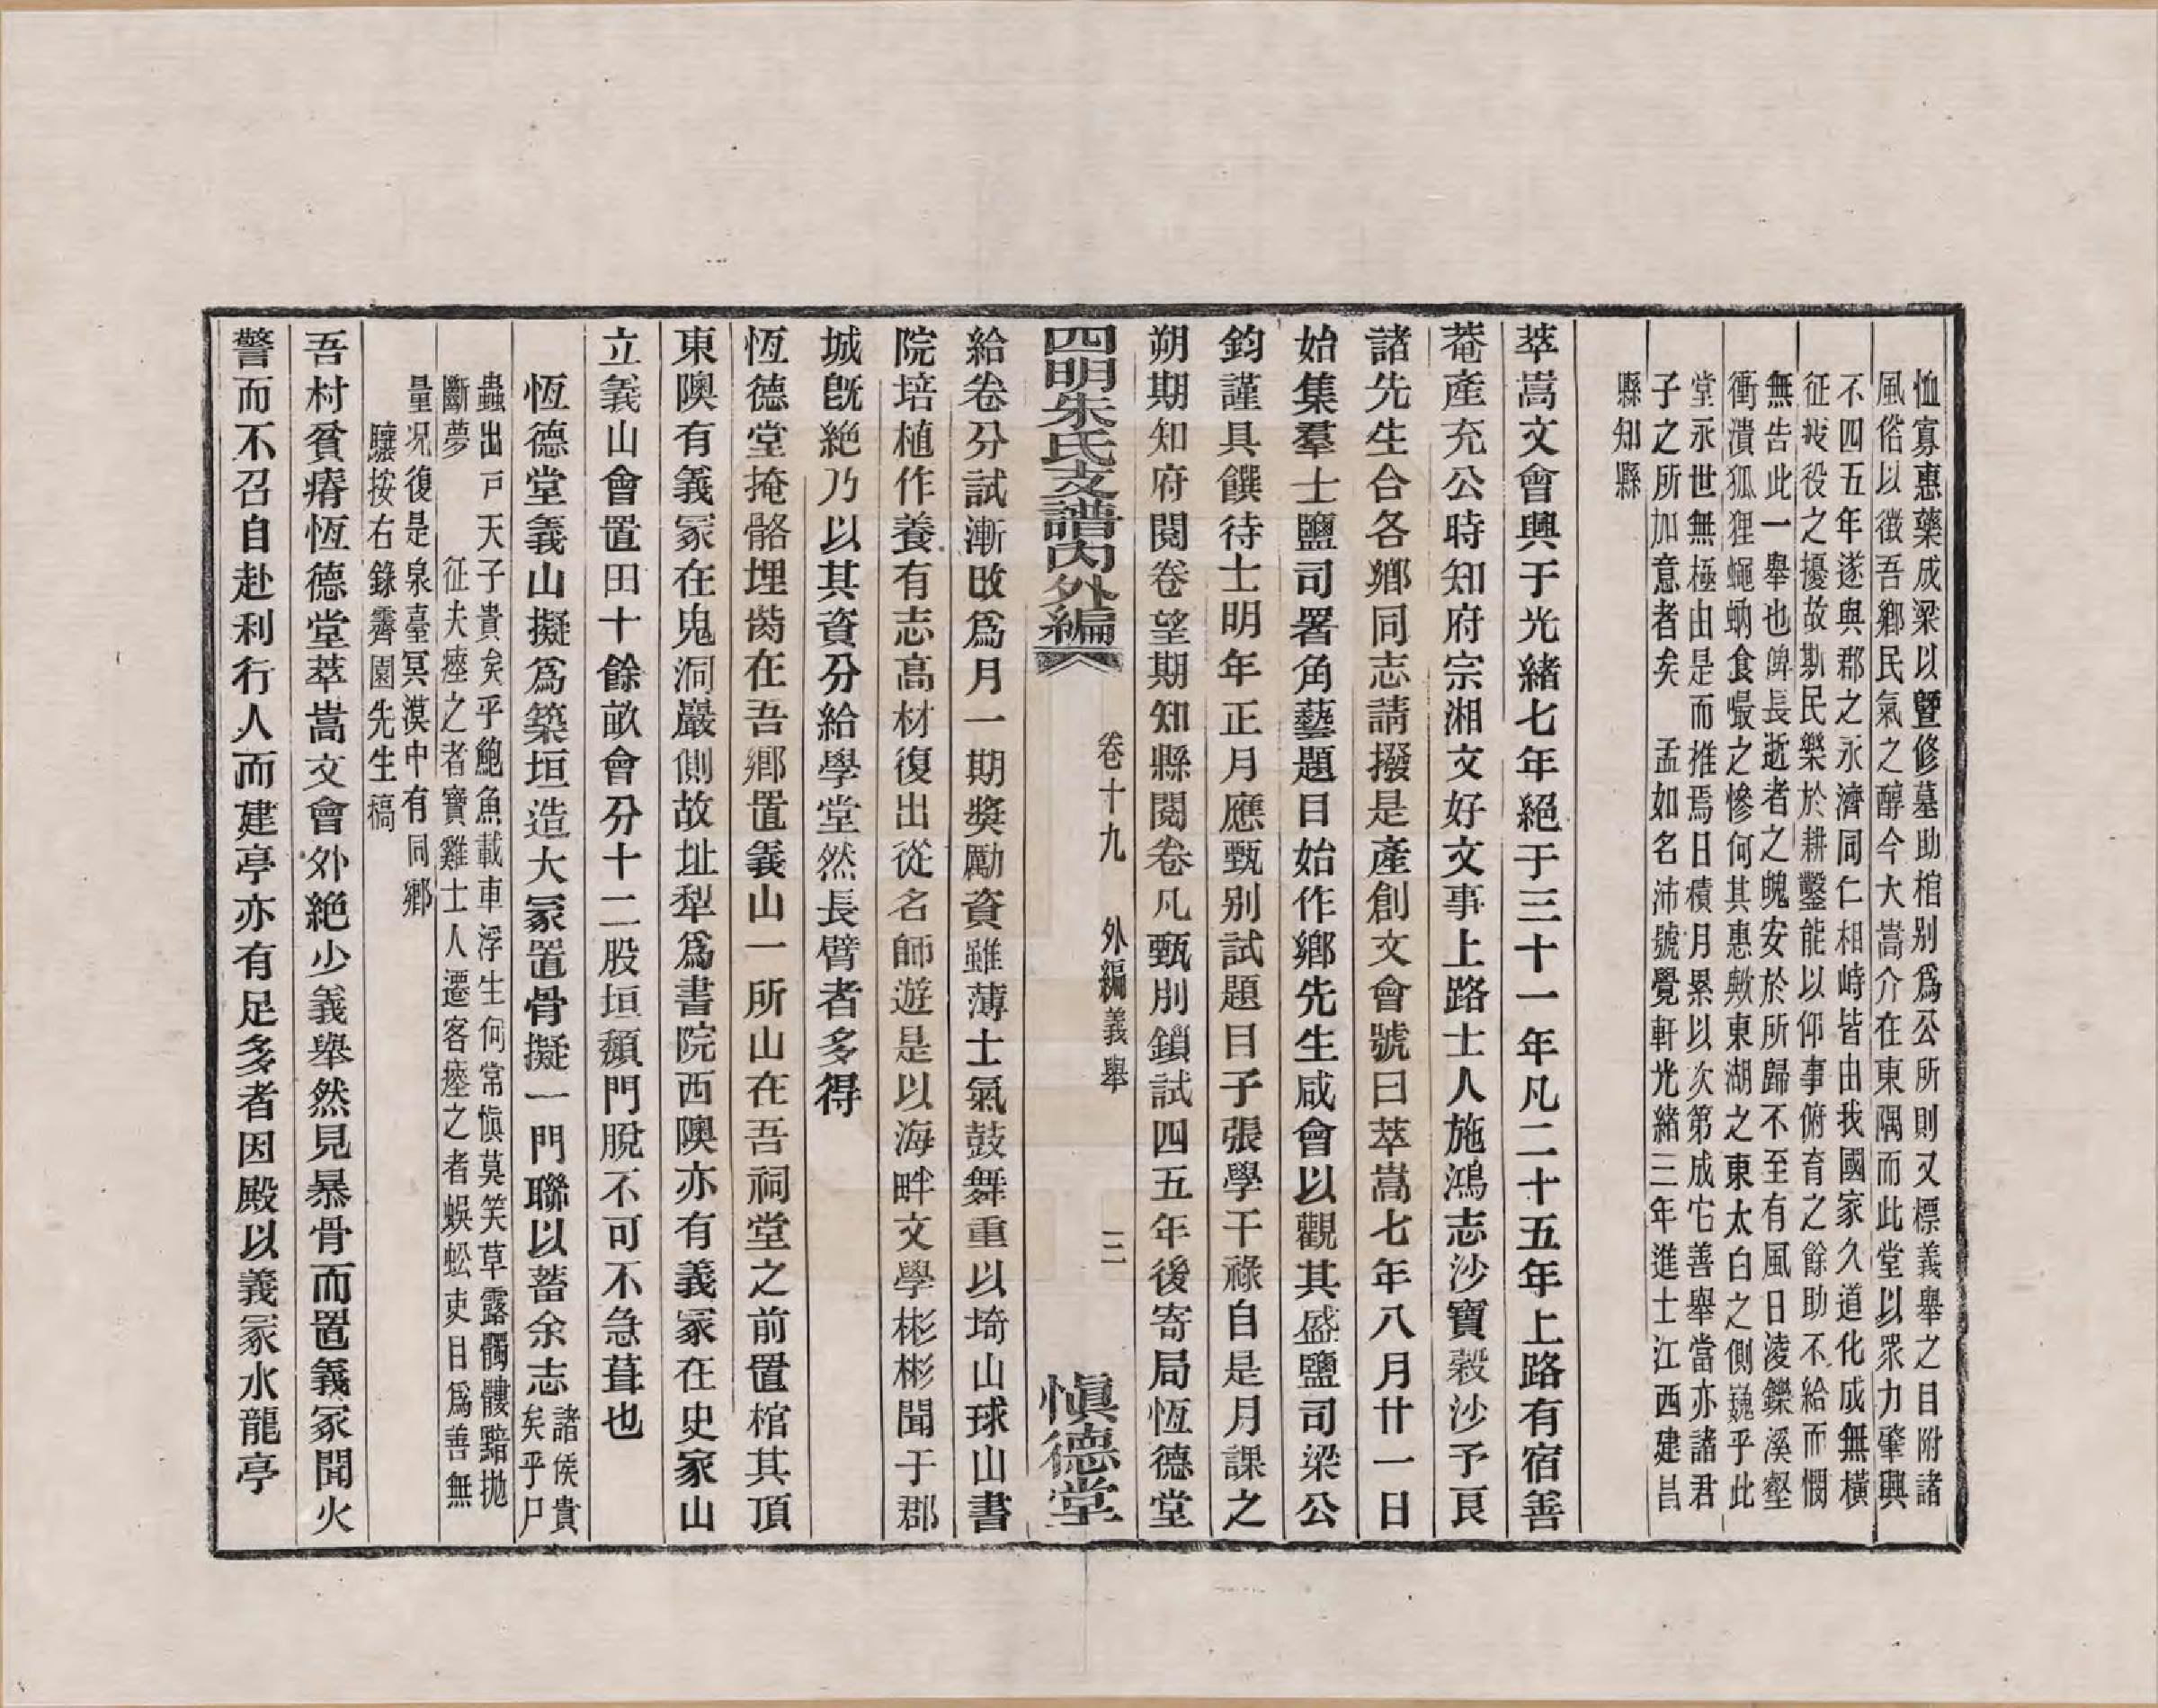 恤寡惠藥成梁以暨修墓助棺别爲公所則又標義舉之目附諸
風俗以徵吾鄉民氣之醇今大嵩介在東隅而此堂以眾力肇興
不四五年遂與郡之永濟同仁相峙皆由我國家久道化成無橫
征歧役之擾故斯民樂於耕鑿能以仰事俯育之餘助不給而憫
無告此一舉也俾長逝者之魄安於所歸不至有風日淩鑠溪壑
衝潰狐狸蠅蚋食嘬之慘何其惠歟東湖之東太白之側巍乎此
堂永世無極由是而推焉日積月累以次第成它善舉當亦諸君
子之所加意者矣　孟如名沛號覺軒光緒三年進士江西建昌
縣知縣
萃嵩文會興于光緒七年絕于三十一年凡二十五年上路有宿善
菴產充公時知府宗湘文好文事上路士人施鴻志沙寶穀沙予艮
諸先生合各鄉同志請撥是產創文會號曰萃嵩七年八月廿一日
始集羣士鹽司署角藝題目始作鄉先生咸會以觀其盛鹽司梁公
鈞謹具饌待士明年正月應甄别試題目子張學干祿自是月課之
朔期知府閱卷望期知縣閱卷凡甄别鎖試四五年後寄局恆德堂
四明朱氏支譜內外編
卷十九　外編義舉　三
愼德堂
給卷分試漸改爲月一期獎勵資雖薄士氣鼓舞重以埼山球山書
院培植作養有志高材復出從名師遊是以海畔文學彬彬聞于郡
城旣絕乃以其資分給學堂然長臂者多得
恆德堂掩骼埋胔在吾鄉置義山一所山在吾祠堂之前置棺其頂
東隩有義冢在鬼洞巖側故址犁爲書院西隩亦有義冢在史家山
立義山會置田十餘畝會分十二股垣頹門脫不可不急葺也
恆德堂義山擬爲築垣造大冢置骨擬一門聯以蓄余志諸侯貴
矣乎尸
蟲出戸天子貴矣乎鮑魚載車浮生何常愼莫笑草露髑髏黯拋
斷夢　征夫瘞之者寶雞士人遷客瘞之者蜈蚣吏目爲善無
量况復是泉臺冥漠中有同鄉
驤按右錄霽園先生稿
吾村貧瘠恆德堂萃嵩文會外絕少義舉然見暴骨而置義冢聞火
警而不召自赴利行人而建亭亦有足多者因殿以義冢水龍亭